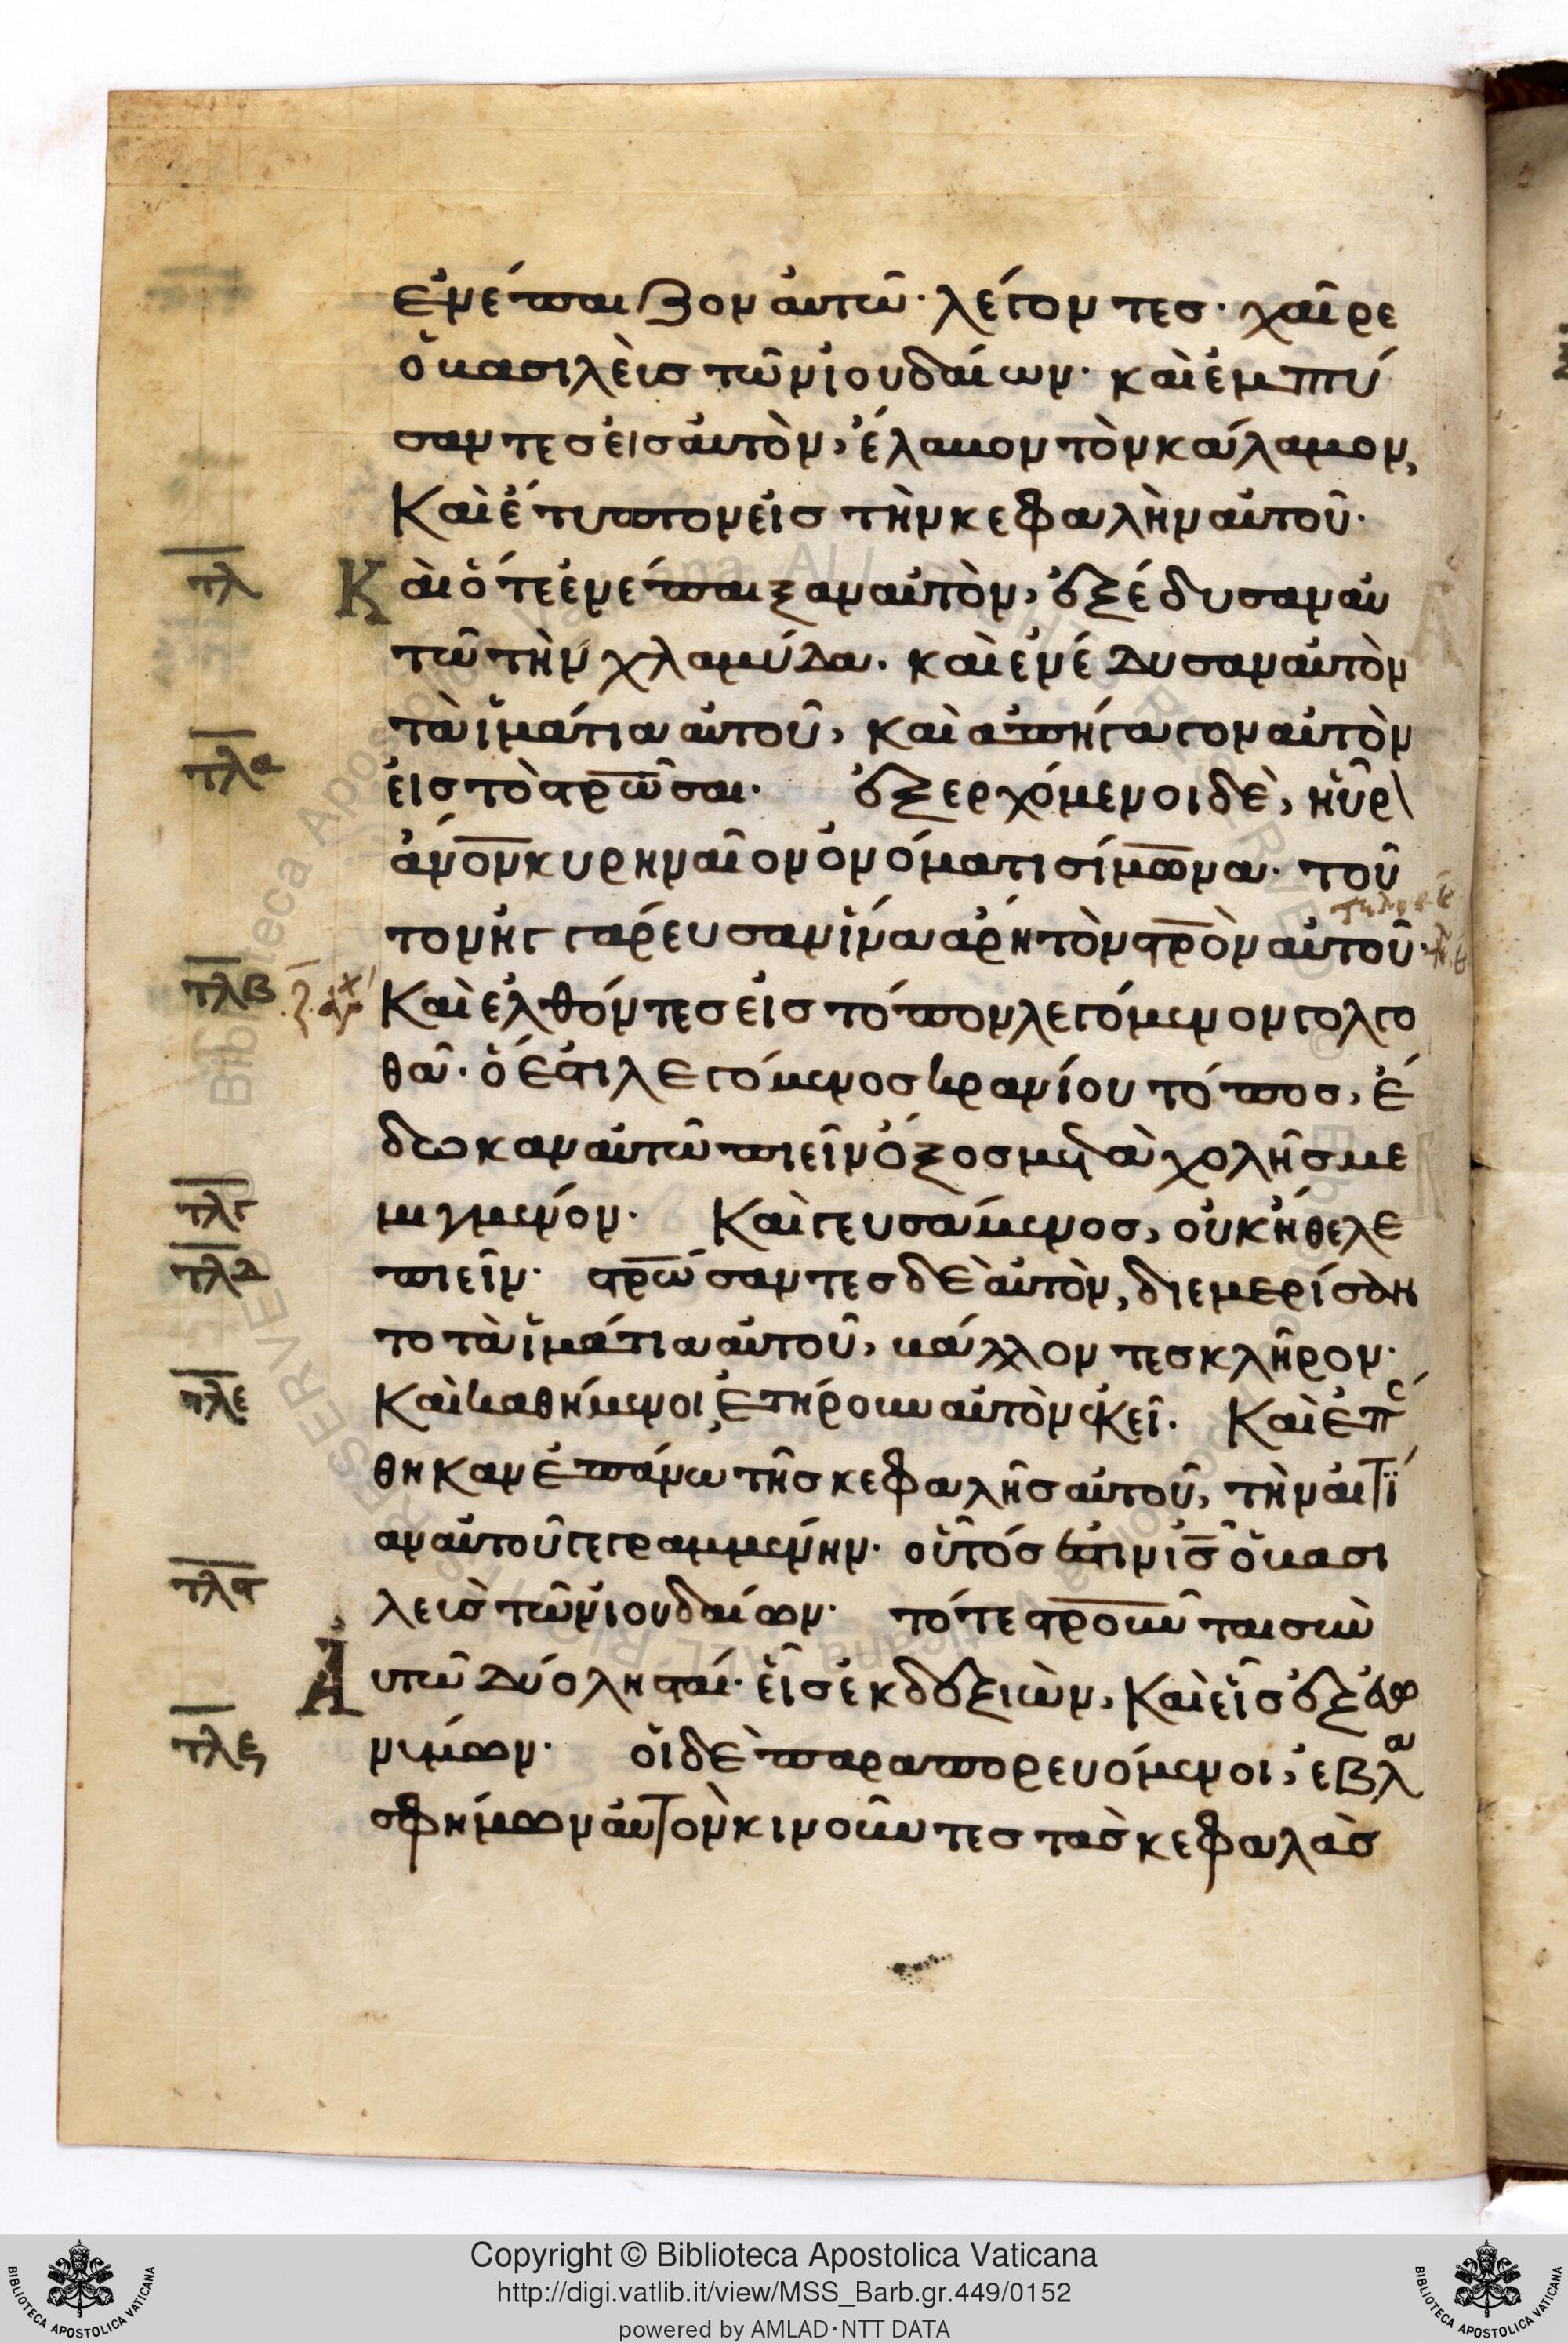 ἐνέπαιζον ἀυτῶ· λέγοντες· χαῖρε
ὁ βασιλὲυς τῶν ἰουδαίων· καὶ ἐμπτύ
σαντες ἐισ ἀυτὸν, ἔλαβον τὸν κάλαμον,
Καὶ ἔτυπτον εἰσ τὴν κεφαλὴν αὐτοῦ·
τλ Κὰι ὅτε ἐνέπαιξαν αὐτὸν, ἐξέδυσαν αὐ
τῶ τὴν χλαμύδα. καὶ ἐνέδυσαν αὐτὸν
τὰ ἱμάτια αὐτοῦ, καὶ ἀπήγαγον αὐτὸν
τλα ἐισ τὸ στρ̅ω̅σαι· ἐξερχόμενοι δὲ, ηὗρ\
ἀν̅ο̅ν̅ κυρηναῖον ὀνόματι σίμωνα· τοῦ
τον ἠγγάρευσαν ἵνα ἄρη τὸν στρ̅ὸν αὐτοῦ·
τλβ Καὶ ἐλθόντεσ εἰσ τόπον λεγόμενον γολγο
θᾶ· ὅ ἐστι λεγόμενοσ κρανίου τόποσ, ἔ
δωκαν αὐτῶ πιεῖν ὄξοσ μετὰ χολῆσ με
τλγ μιγμένον· Καὶ γευσάμενοσ, οὐκ ἤθελε
τλδ πιεῖν· στρ̅ώσαντεσ δὲ ἀυτὸν, διεμερίσαν
το τὰ ἱμάτια αὐτοῦ, βάλλοντεσ κλῆρον·
τλε Καὶ καθήμενοι, ἐτήρουν αὐτὸν ἐκεῖ. Καὶ ἐπέ
θηκαν ἐπάνω τῆσ κεφαλῆσ αὐτοῦ, τὴν ἀιτί
αν αὐτοῦ γεγραμμένην· οὗτόσ ἐστιν ι̅σ̅ ὁ βασι
τλϛ λεὺσ τῶν ἰουδαίων· τότε στρ̅οῦνται σὺν
Ἀυτῶ δύο λησταί· εἷσ ἐκ δεξιῶν, Καὶ εἷσ ἐξ ἐυω
τλζ νύμων· οἱ δὲ παραπορευόμενοι, ἐβλα
σφήμουν ἀυτὸν κινοῦντεσ τὰσ κεφαλὰσ
Copyright © Biblioteca Apostolica Vaticana
http://digi.vatlib.it/view/MSS_Barb.gr.449/0152
powered by AMLAD·NTT DATA
BIBLIOTECA APOSTOLICA VATICANA
BIBLIOTECA APOSTOLICA VATICANA